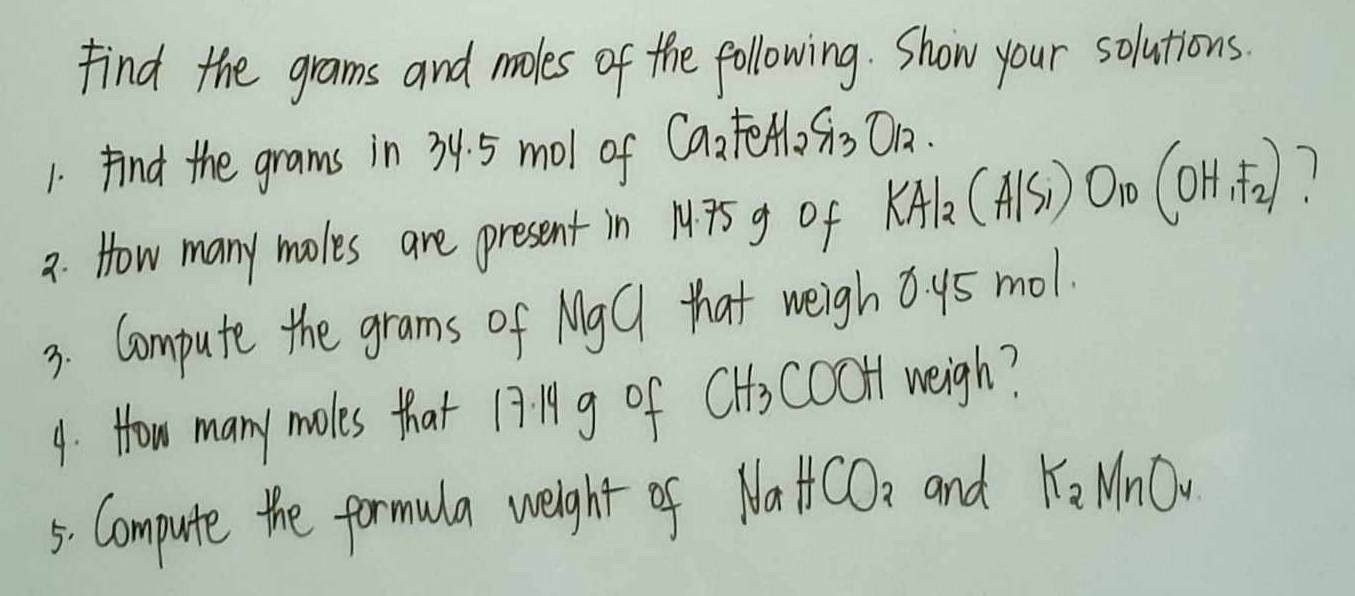 Find the grams and moles of the following. Show your solutions.
1. Find the grams in 34.5 mol of Ca₂FeAl₂Si₃O₁₂.
2. How many moles are present in 14.75 g of KAl₂(AlSi)O₁₀(OH,F₂)?
3. Compute the grams of MgCl that weigh 0.45 mol.
4. How many moles that 17.14 g of CH₃COOH weigh?
5. Compute the formula weight of NaHCO₂ and K₂MnO₄.